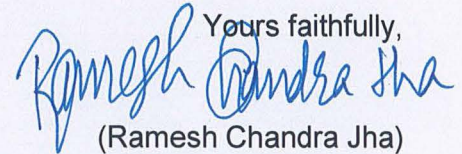 Yours faithfully,
Ramesh Chandra Jha
(Ramesh Chandra Jha)